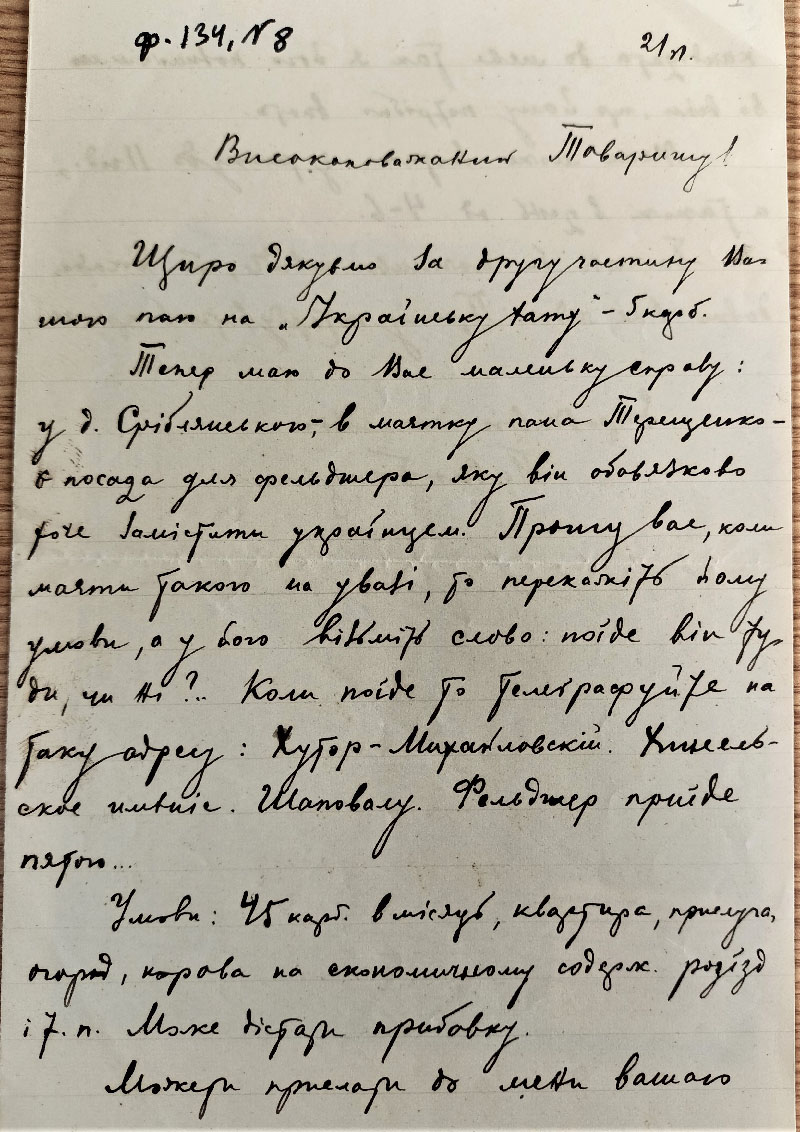 ф. 134, N 8 21 л.
Високоповажаний Товаришу!
Щиро дякуємо за другу частину Ва-
шого паю на „Українську Хату" – 5 карб.
Тепер маю до Вас маленьку справу:
у д. Сріблянського, в маятку пана Терещенко-
є посада для фельдшера, яку він обовязково
хоче замістити українцем. Прошу вас, коли
маєти такого на увазі, то перекажіть йому
умови, а у його візьміть слово: поїде він ту-
ди, чи ні?.. Коли поїде то телєграфуйте на
таку адресу: Хутор-Михайловскій. Хинель-
ское имѣніе. Шаповалу. Фельдшер приїде
пятого...
Умови: 45 карб. в місяць, квартира, прислуга,
огород, корова на економичному содерж. розїзд
і т. п. Може дістати прибовку.
Можети прислати до мени вашого